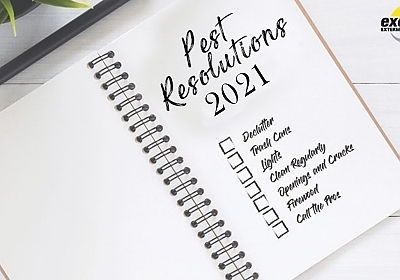 Pest
Resolutions
2021
Declutter
Trash Cans
Lights
Clean Regularly
Openings and Cracks
Firewood
Call the Pros